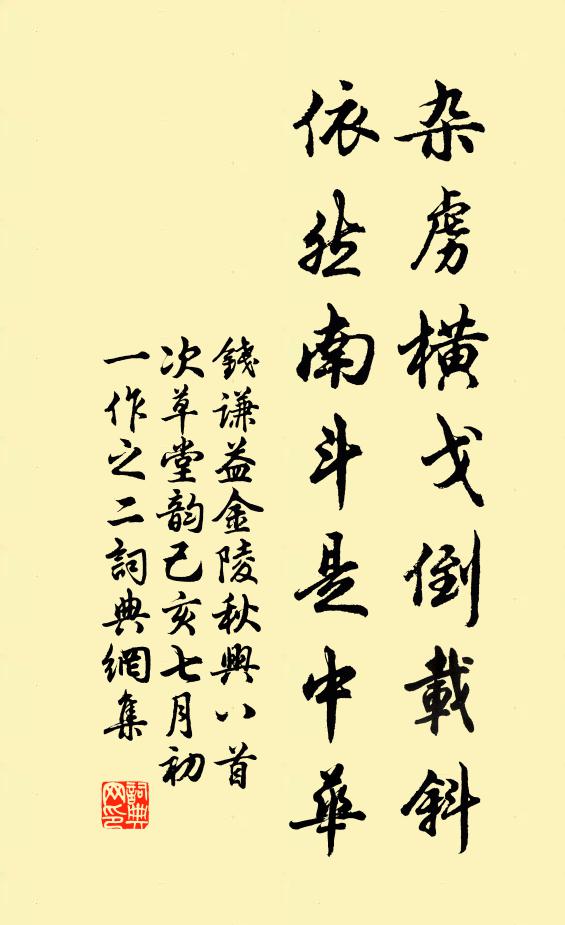 杂虏横戈倒載斜
依然南斗是中華
錢謙益金陵秋興八首
次草堂韵己亥七月初
一作之二詞典網集
詞典网印